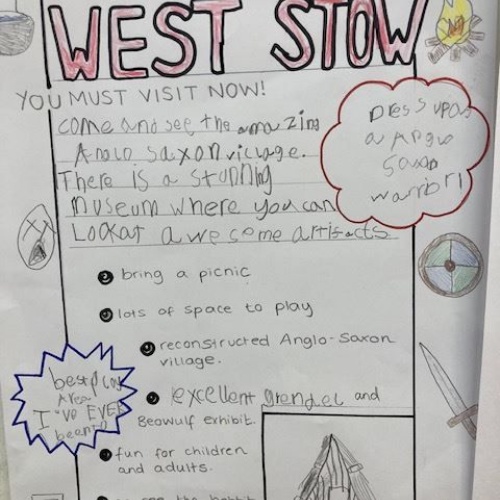 WEST STOW
YOU MUST VISIT NOW!
come and see the amazing
Anglo saxon village.
There is a stunning
museum where you can
Look at awesome artifacts
Dress up as
a Anglo
Saxon
warrior!
bring a picnic
lots of space to play
reconstructed Anglo-Saxon
village.
excellent grendel and
Beowulf exhibit.
best play
Area
I've EVER
been to
fun for children
and adults.
see the